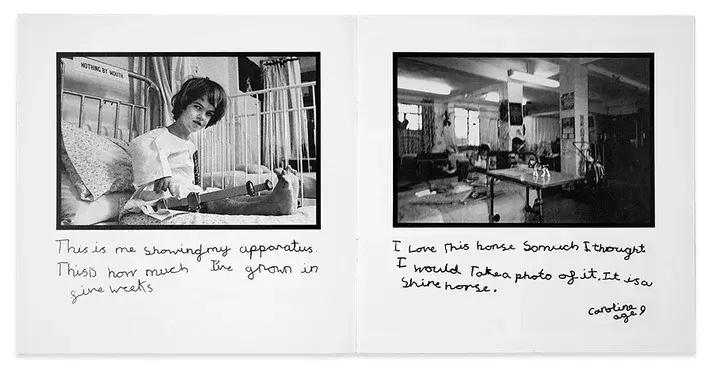 NOTHING BY MOUTH
This is me showing my apparatus.
This is how much I've grown in
give weeks
I Love This horse So much I thought
I would Take a photo of it. It is a
Shire horse.
Caroline
age 9